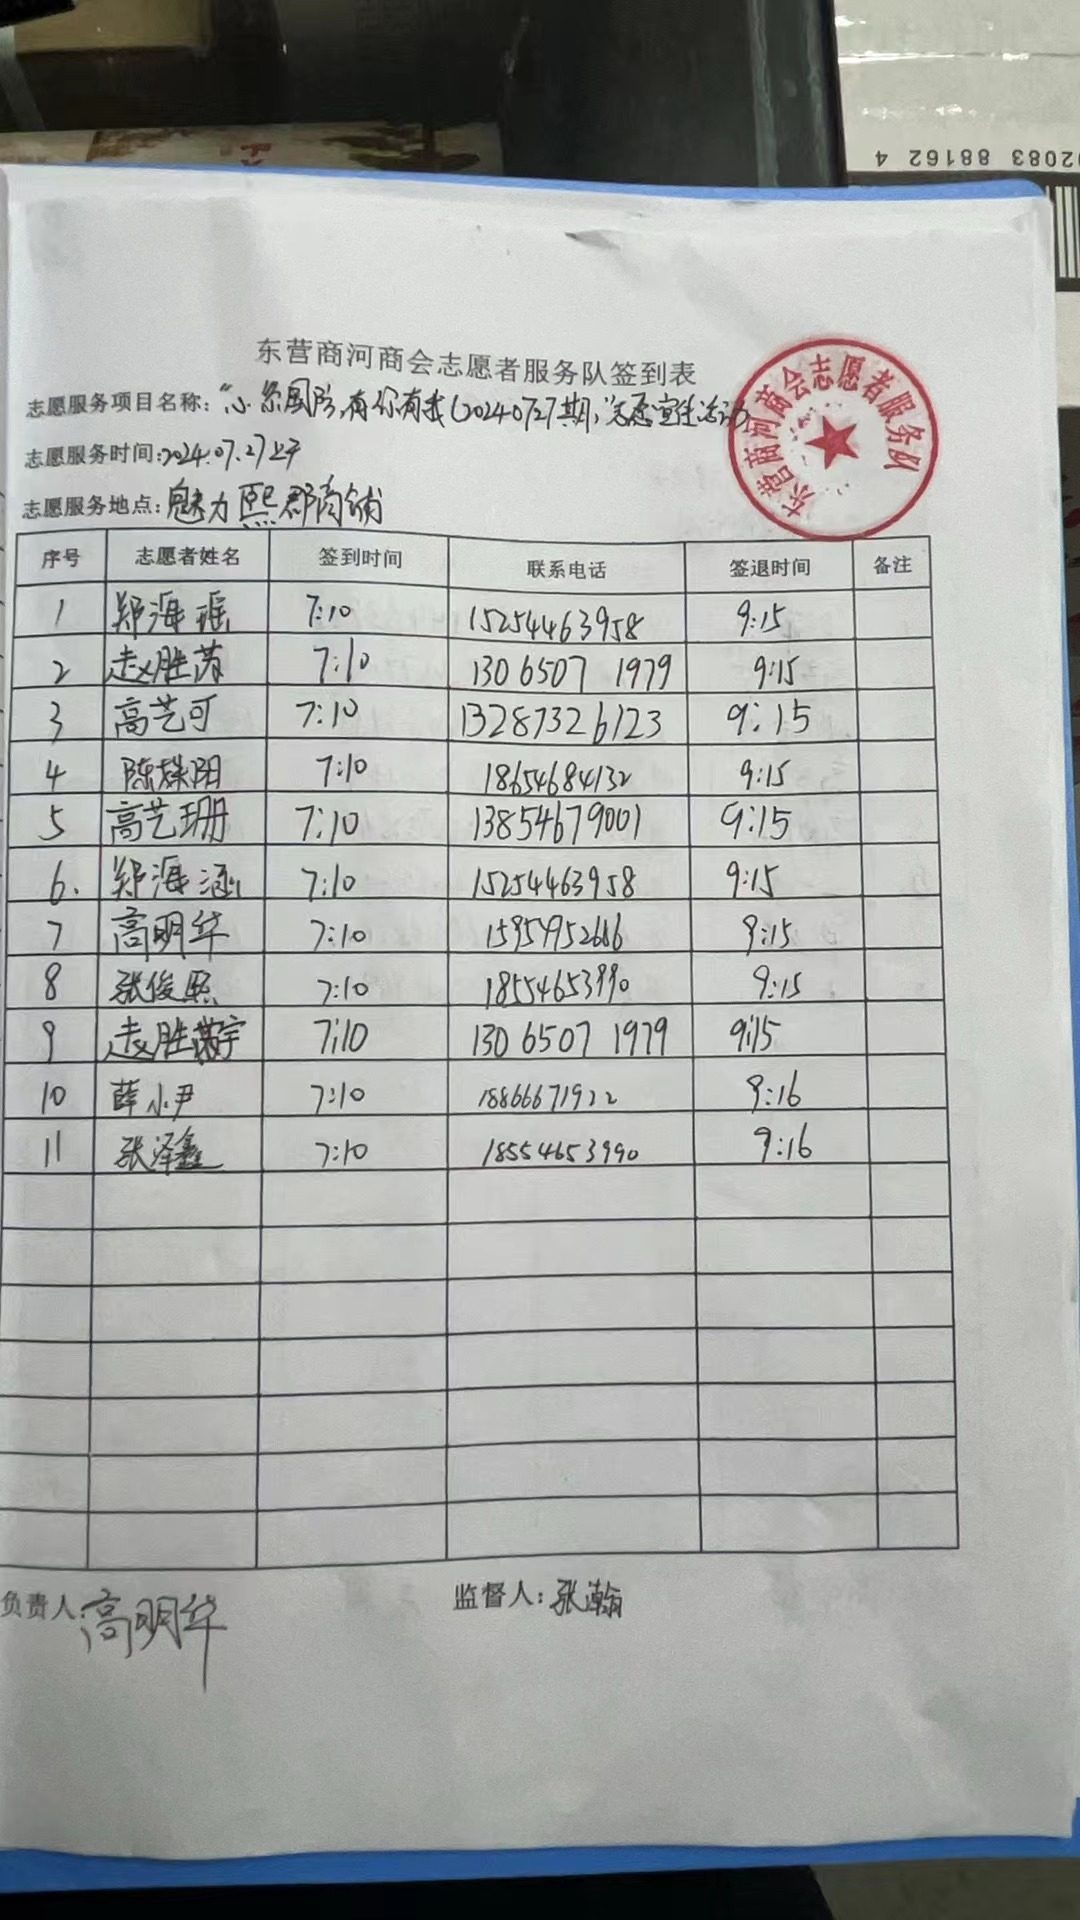 02083 88162 4
东营商河商会志愿者服务队签到表
东营商河商会志愿者服务队
志愿服务项目名称:"心系国防,有你有我(20240727期)"志愿宣传活动
志愿服务时间:2024.07.27上午
志愿服务地点:魅力熙郡商铺
序号 志愿者姓名 签到时间 联系电话 签退时间 备注
1 郑海瑶 7:10 15254463958 9:15
2 赵胜 7:10 130 6507 1979 9:15
3 高艺可 7:10 13287326123 9:15
4 陈姝阳 7:10 18654684132 9:15
5 高艺珊 7:10 13854679001 9:15
6. 郑海涵 7:10 15254463958 9:15
7 高明华 7:10 9:15
8 张俊熙 7:10 18554653990 9:15
9 赵胜 宇 7:10 130 6507 1979 9:15
10 薛小尹 7:10 18866671922 9:16
11 张泽鑫 7:10 18554653990 9:16
负责人:高明华 监督人:张瀚